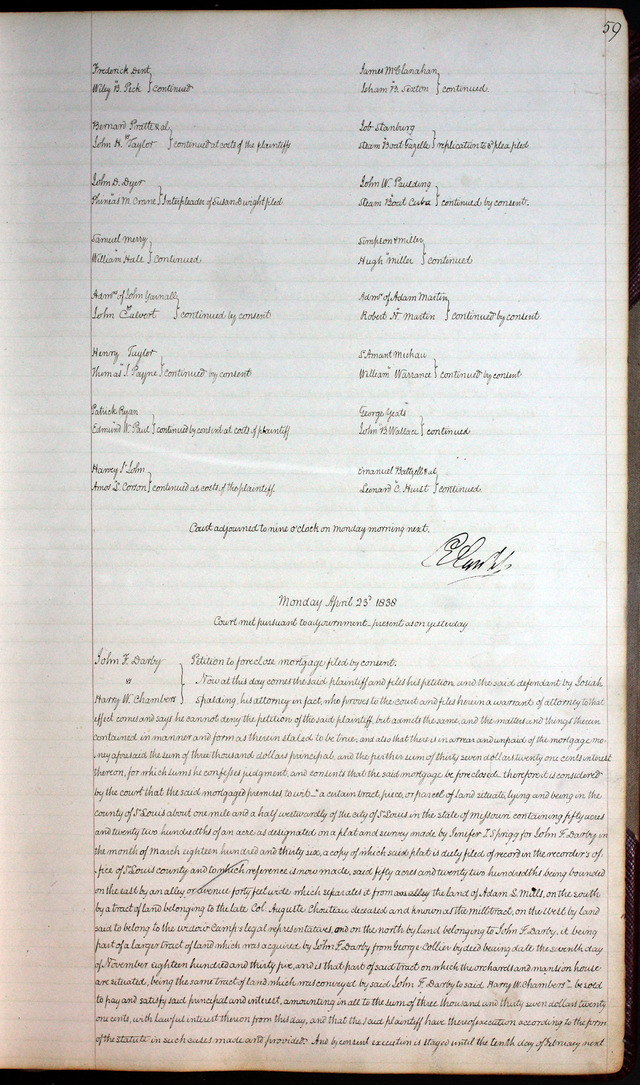 59
Frederick Dent
Wiley B. Peck } continued
Bernard Pratte & al
John H. Taylor } continued at costs of the plaintiff
John D. Dyer
Phineas M. Crane } Interpleader of Susan Dwight filed
Samuel Merry
William Hale } continued
Admrs of John Yarnall
John Calvert } continued by consent
Henry Taylor
Thomas J. Payne } continued by consent
Patrick Ryan
Edmund W. Paul } continued by consent at costs of plaintiff
Harvey St John
Amos L. Corson } continued at costs of the plaintiff.
James McClanahan
Isham B. Sexton } continued.
Job Stanbury
Steam Boat Gazelle } replication to 2d plea filed
John W. Paulding
Steam Boat Cuba } continued by consent.
Simpson & Miller
Hugh Miller } continued
Admr of Adam Martin
Robert N. Martin } continued by consent.
St Amant Michau
William Warrance } continued by consent
George Yeats
John B Wallace } continued
Emanuel Battzell & al
Leonard C. Huist } continued.
Court adjourned to nine o'clock on Monday morning next.
Monday April 23d 1838
Court met pursuant to adjournment present as on yesterday
John F. Darby
vs
Harry W. Chambers
Petition to foreclose mortgage filed by consent.
Now at this day comes the said plaintiff and files his petition, and the said defendant by Josiah
Spalding, his attorney in fact, who proves to the court and files herein a warrant of attorney to that
effect comes and says he cannot deny the petition of the said plaintiff, but admits the same, and the matters and things therein
contained in manner and form as therein stated to be true, and also that there is in arrear and unpaid of the mortgage mo-
ney aforesaid the sum of three thousand dollars principal, and the further sum of thirty seven dollars twenty one cents interest
thereon, for which sums he confesses judgment, and consents that the said mortgage be foreclosed. therefore it is considered
by the court that the said mortgage premises to wit "a certain tract, piece, or parcel of land situate, lying and being in the
county of St Louis about one mile and a half westwardly of the city of St Louis in the state of Missouri containing fifty acres
and twenty two hundredths of an acre as designated on a plat and survey made by Jenifer T. Sprigg for John F. Darby in
the month of March eighteen hundred and thirty six, a copy of which said plat is duly filed of record in the recorders of-
fice of St Louis county and to which reference is now made, said fifty acres and twenty two hundredths being bounded
on the east by an alley or avenue forty feet wide which separates it from an alley the land of Adam L. Mills, on the south
by a tract of land belonging to the late Col. Auguste Chouteau deceased and known as the mill tract, on the West by land
said to belong to the widow Camp's legal representatives, and on the north by land belonging to John F. Darby, it being
part of a larger tract of land which was acquired by John F. Darby from George Collier by deed bearing date the seventh day
of November eighteen hundred and thirty five, and is that part of said tract on which the orchards and mansion house
are situated, being the same tract of land which was conveyed by said John F. Darby to said Harry W. Chambers" be sold
to pay and satisfy said principal and interest, amounting in all to the sum of three thousand and thirty seven dollars twenty
one cents, with lawful interest thereon from this day, and that the said plaintiff have thereof execution according to the form
of the statute in such cases made and provided. And by consent execution is stayed until the tenth day of February next